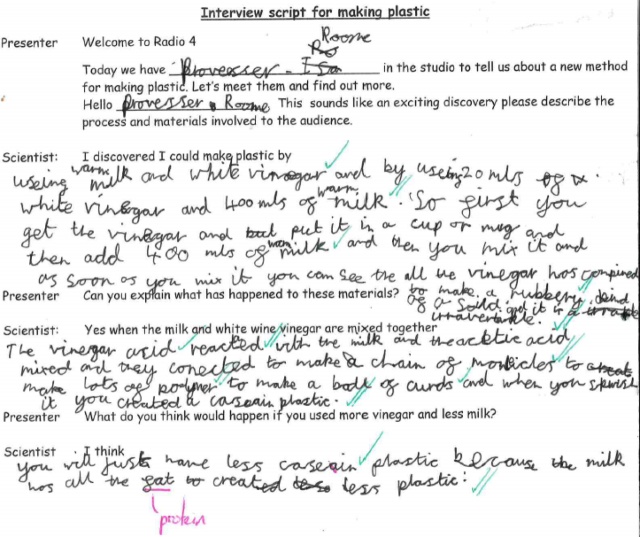 Interview script for making plastic
Roome
Presenter Welcome to Radio 4
Today we have Provesser - in the studio to tell us about a new method
for making plastic. Let's meet them and find out more.
Hello Provesser Roome This sounds like an exciting discovery please describe the
process and materials involved to the audience.
Scientist: I discovered I could make plastic by
warm
useing milk and white vinegar and by useing 20 mls of
warm
white vinegar and 400 mls of milk. So first you
get the vinegar and put it in a cup or mug and
warm
then add 400 mls of milk and then you mix it and
as soon as you mix it you can see the all the vinegar has
Presenter Can you explain what has happened to these materials? to make a rubbery kind
of a soild and it is
Scientist: Yes when the milk and white wine vinegar are mixed together
The vinegar acid reacted with the milk and the acktic acid
mixed and they conected to make a chain of to
make lots of polymer to make a ball of curds and when you
it you created a caseain plastic.
Presenter What do you think would happen if you used more vinegar and less milk?
Scientist I think
you will just have less caseain plastic because the milk
has all the fat to created less plastic.
protein